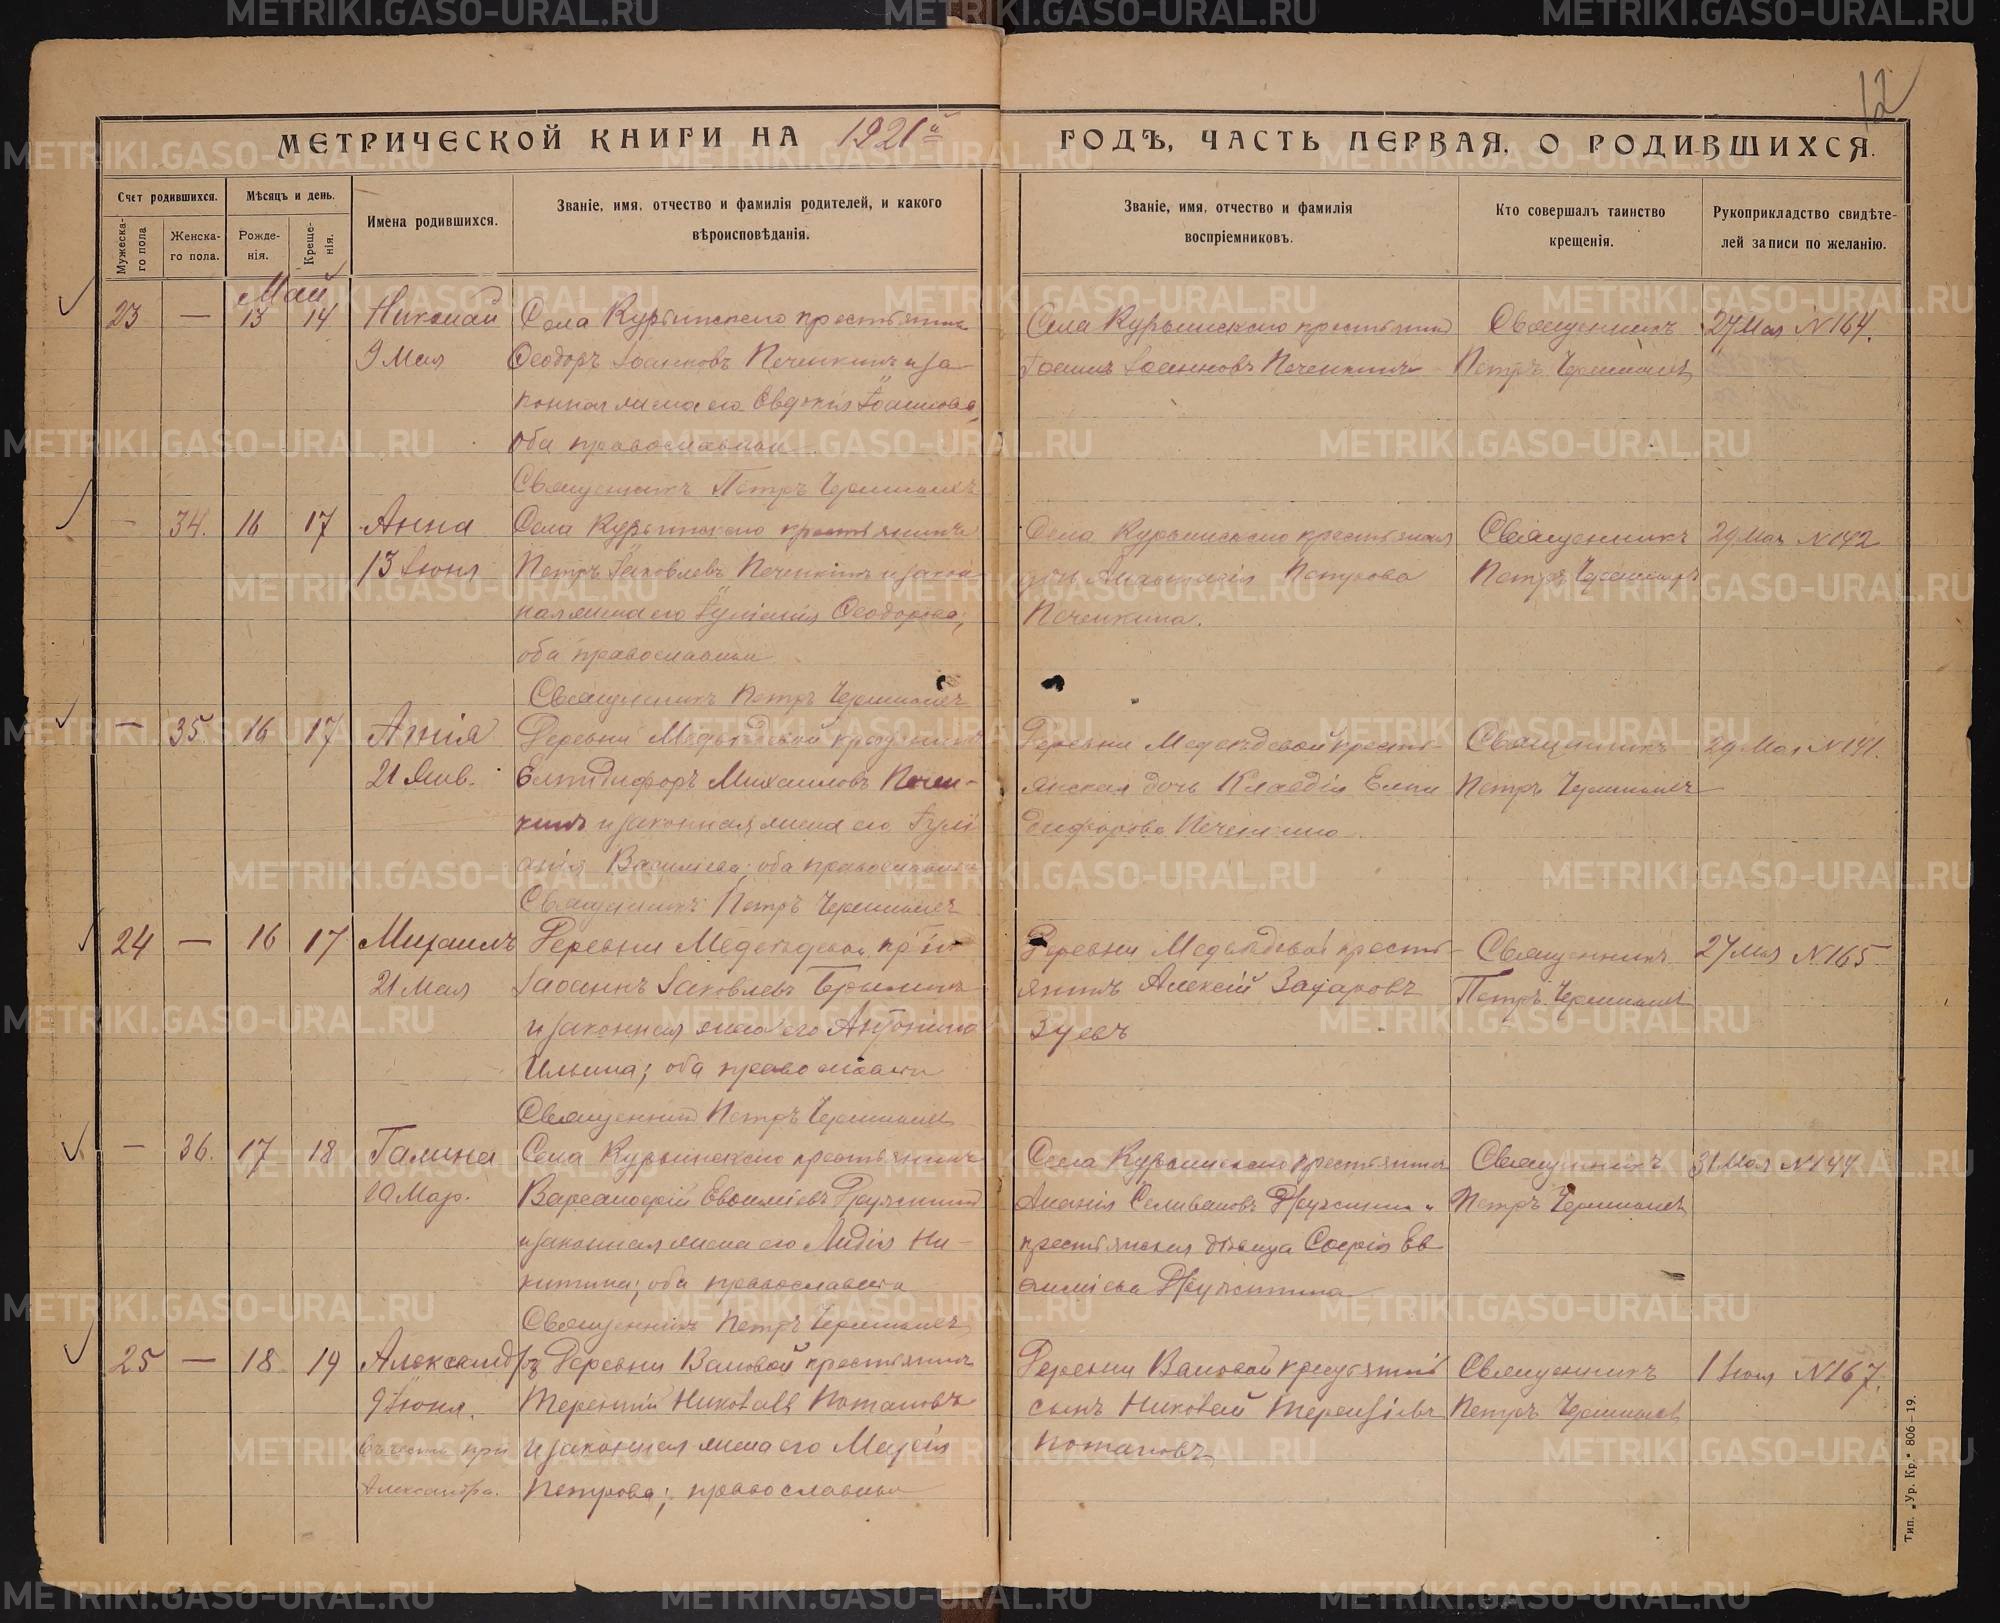 12
МЕТРИЧЕСКОЙ КНИГИ НА 1921 й ГОДЪ, ЧАСТЬ ПЕРВАЯ, О РОДИВШИХСЯ.
Счет родившихся.
Мужеска-го пола
Женска-го пола.
Мѣсяцъ и день.
Рожде-нія.
Креще-нія.
Имена родившихся.
Званіе, имя, отчество и фамилія родителей, и какого
вѣроисповѣданія.
Званіе, имя, отчество и фамилія
воспріемниковъ.
Кто совершалъ таинство
крещенія.
Рукоприкладство свидѣте-
лей записи по желанію.
Май
23 — 13 14 Николай
9 Мая
Села Курьинскаго крестьянинъ
Ѳеодоръ Іоанновъ Печенкинъ и за-
конная жена его Евдокія Іоаннова,
оба православные
Священникъ Петръ
Села Курьинскаго крестьянинъ
Іоаннъ Іоанновъ Печенкинъ
Священникъ
Петръ
27 Мая №164.
— 34. 16 17 Анна
13 Іюня
Села Курьинскаго крестьянинъ
Петръ Іаковлевъ Печенкинъ и закон-
ная жена его Іуліанія Ѳеодорова;
оба православные
Священникъ Петръ
Села Курьинскаго крестьянская
дочь Анастасія Петрова
Печенкина.
Священникъ
Петръ
29 Мая №142
— 35. 16 17
21 Янв.
Деревни Медвѣдевой крестьянинъ
Елпидифоръ Михаиловъ Печен-
кинъ и законная жена его Іулі
анія Василіева; оба православные
Священникъ Петръ
Деревни Медвѣдевой кресть-
янская дочь Клавдія Елпи
дифорова Печенкина.
Священникъ
Петръ
29 Мая №141.
24 — 16 17 Михаилъ
21 Мая
Деревни Медвѣдевой
Іоаннъ Іаковлевъ
и законная жена его Антонина
Ильина; оба православные
Священникъ Петръ
Деревни Медвѣдевой кресть-
янинъ Алексій Захаровъ
Зуевъ
Священникъ
Петръ
27 Мая №165
— 36. 17 18 Галина
10 Мар.
Села Курьинскаго крестьянинъ
Варѳаломей Евѳиміевъ
и законная жена его Лидія Ни-
китина; оба православные
Священникъ Петръ
Села Курьинскаго крестьянинъ
Ананія Селивановъ и
крестьянская дѣвица Софія Ев
ѳиміева
Священникъ
Петръ
31 Мая №144
25 — 18 19 Александръ
9 Іюня.
въ честь пр
Александра.
Деревни Валовой крестьянинъ
Терентій Потаповъ
и законная жена его Марія
Петрова; православные
Деревни Валовой
сынъ Терентіевъ
Потаповъ
Священникъ
Петръ
1 Іюня №167.
Тип. „Ур. Кр.“ 806–19.
METRIKI.GASO-URAL.RU